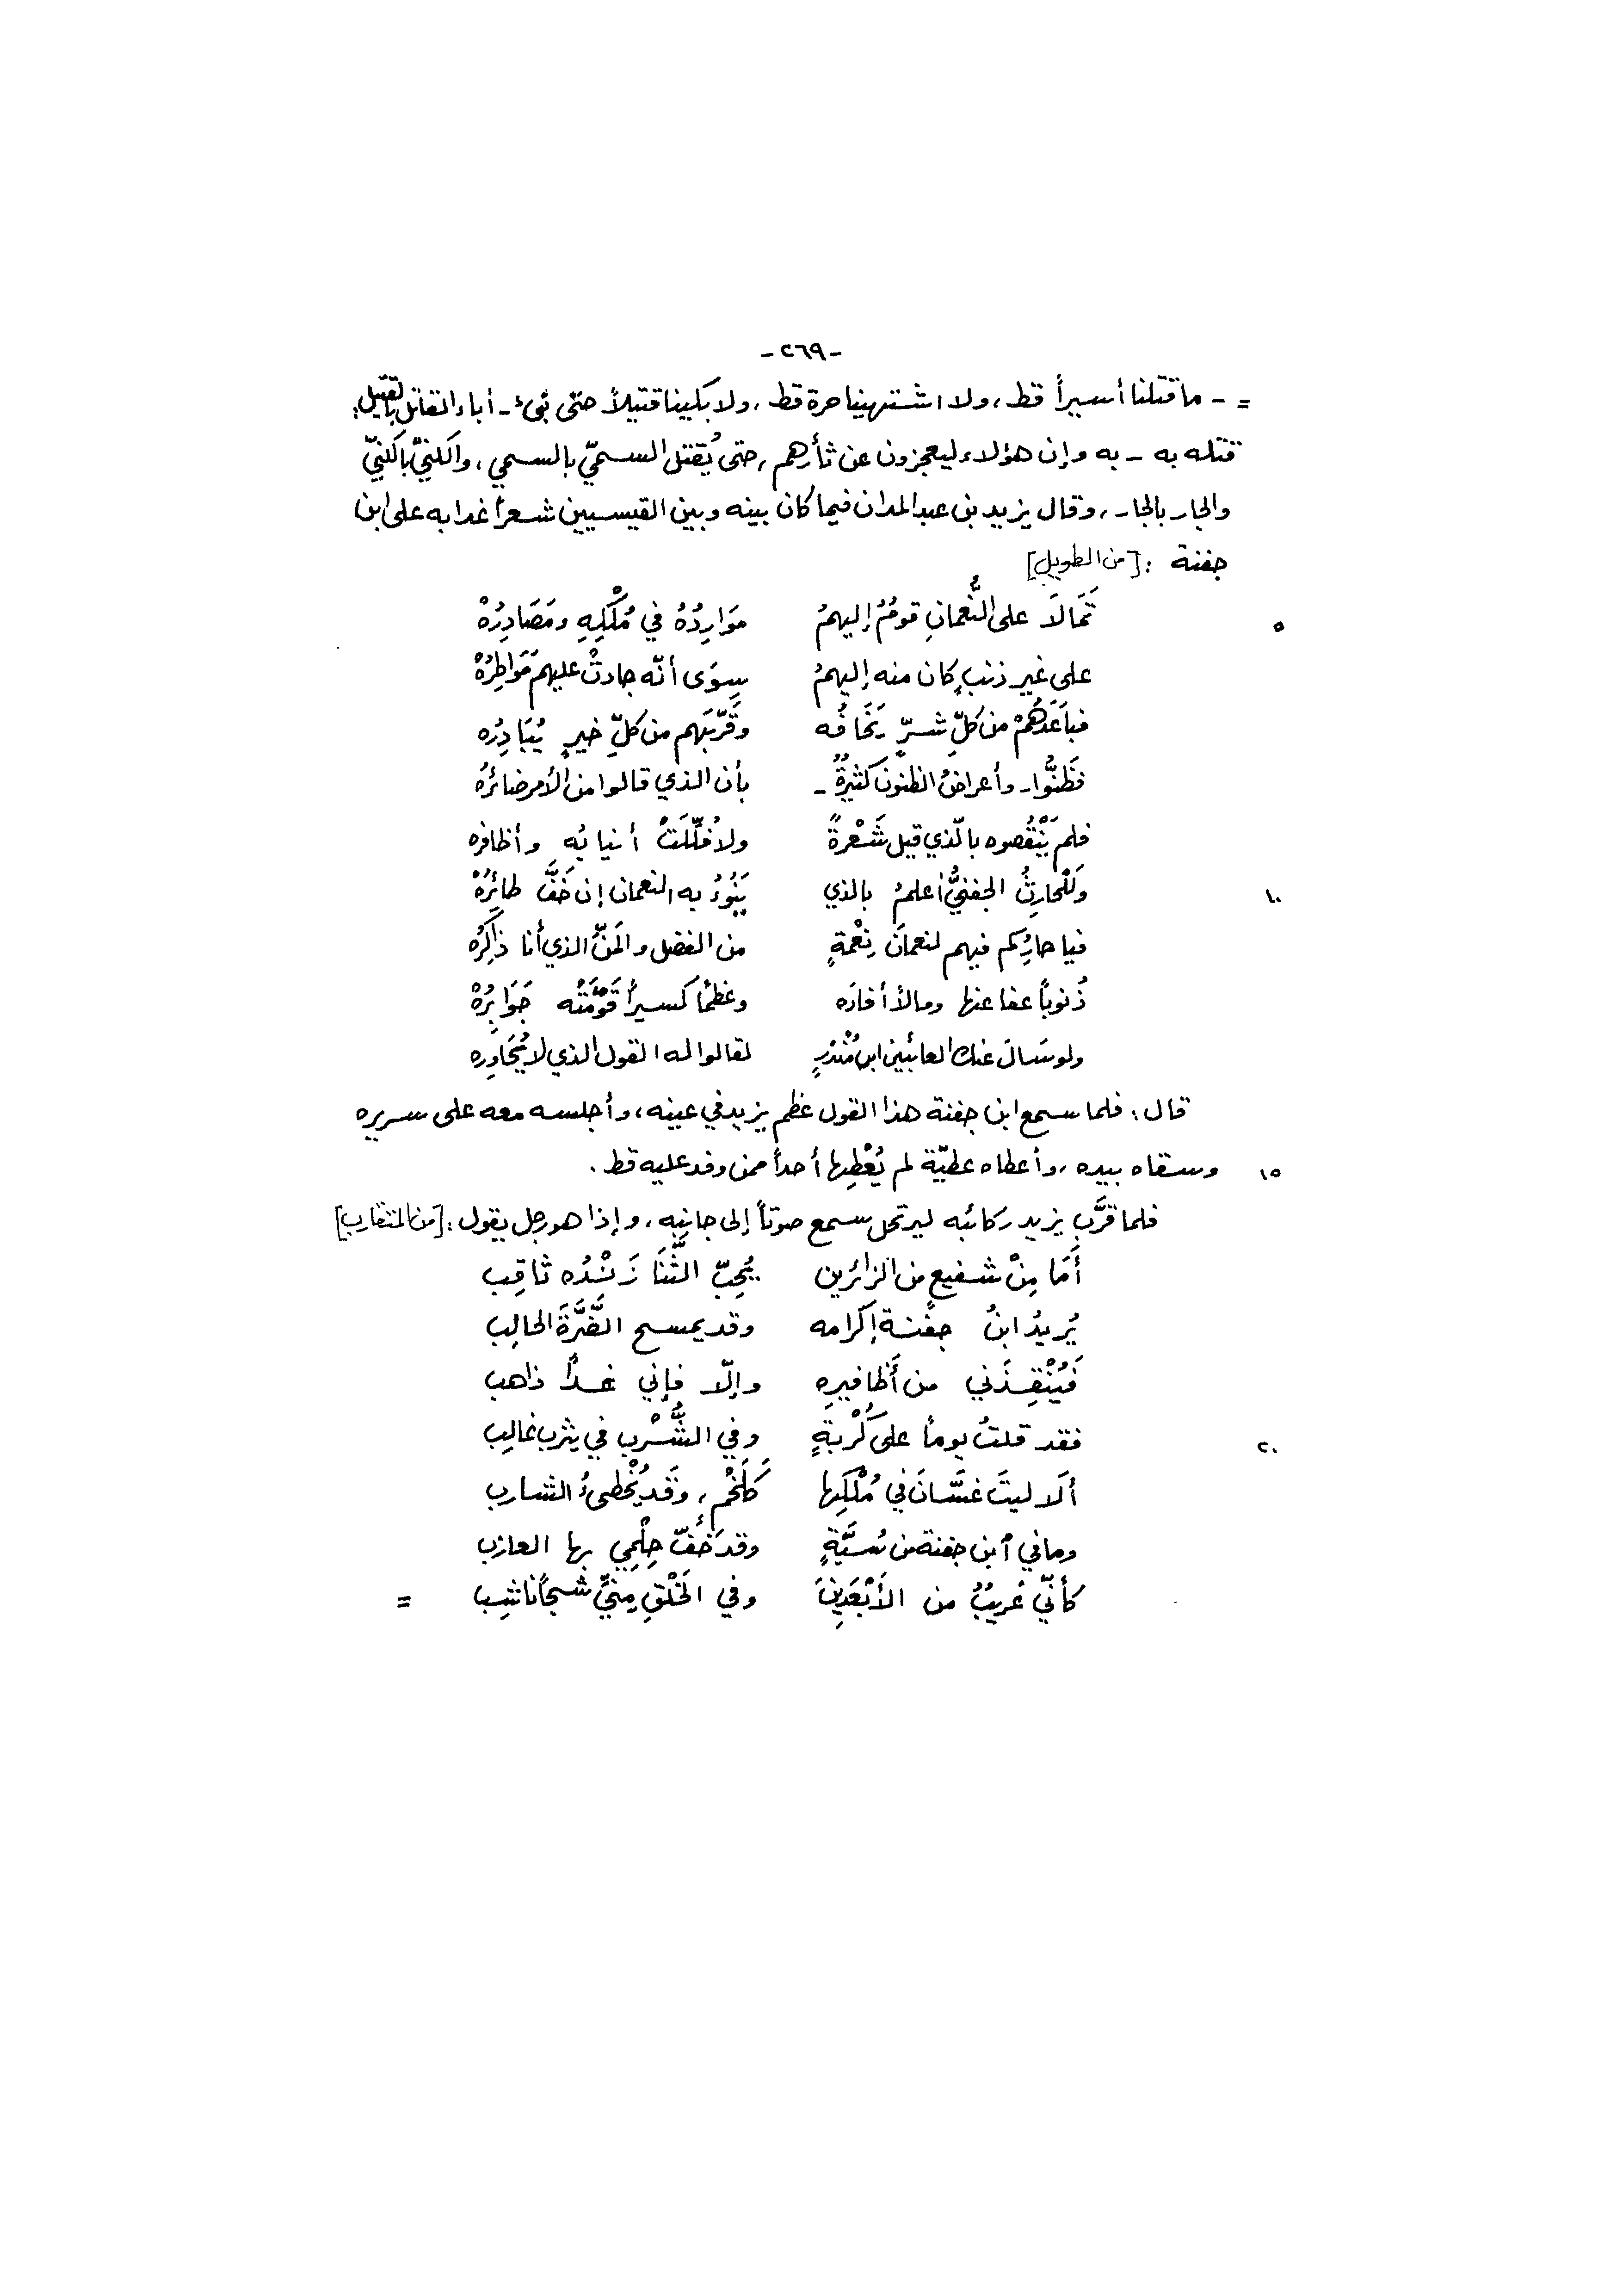 -٢٦٩-
= - ما قتلنا أسيراً قط، ولا اشتهينا حرة قط، ولا بكينا قتيلاً حتى نبيء - أباء القاتل بالقتيل:
قتله به - به وإن هؤلاء ليعجزون عن ثأرهم، حتى يُقتل السميّ بالسمي، والكنيّ بالكنيّ
والجار بالجار، وقال يزيد بن عبد المدان فيما كان بينه وبين القيسيين شعراً غدا به على ابن
جفنة : [من الطويل]
تَمَالا على النُّعمانِ قومٌ إليهمُ مَوَارِدُهُ في مُلْكِهِ ومَصَادِرُهْ
٥
على غير ذنبٍ كان منه إليهمُ سِوَى أنّه جادتْ عليهم مَوَاطِرُهْ
فباعَدَهُمْ من كلّ شرّ يَخَافُه وقَرّبَهم من كلّ خيرٍ يُبَادِرُه
فظَنُّوا - وأعراضُ الظنون كثيرةٌ - بأن الذي قالوا من الأمر ضائرُه
فلم يَنْقُصوه بالّذي قيل شَعْرةً ولا فُلِّلَتْ أنيابُه وأظافره
وَلَلْحارِثُ الجفنيُّ أعلمُ بالذي يَنُوءُ به النعمان إن خَفَّ طائِرُهْ
١٠
فيا حارُ كم فيهم لنعمانَ نِعْمةٍ من الفضل والمَنِّ الذي أنا ذاكِرُه
ذُنوباً عفا عنها ومالاً أفادَه وعَظْماً كسيراً قَوّمَتْه جَوَابِرُهْ
ولو سَال عنك العائبين ابنُ مُنْذِرٍ لقالوا له القول الذي لا يُحَاوِره
قال: فلما سمع ابن جفنة هذا القول عظم يزيد في عينه، وأجلسه معه على سريره
وسقاه بيده، وأعطاه عطيّة لم يُعْطِها أحداً ممن وفد عليه قط.
١٥
فلما قرَّب يزيد ركائبه ليرتحل سمع صوتاً إلى جانبه، وإذا هو رجل يقول: [من المتقارب]
أَمَا مِنْ شفيعٍ من الزائرين يُحِبّ الثَّنَا زَنْدُه ثاقِب
يُريدُ ابنُ جفْنة إكرامه وقد يمسح الضَّرَّةَ الحالِب
فَيُنْقِذَني من أَظافيرِهِ وإلّا فإني غداً ذاهب
فقد قلتُ يوماً على كُرْبةٍ وفي الشَّرْب في يثرب غالِب
٢٠
ألا ليتَ غسّانَ في مُلْكِها كَلَخْمٍ، وقَد يُخْطىءُ الشارب
وما في ابن جفنة من سُبَّةٍ وقد خَفّ حِلْمِي بها العازب
كأنّي غريبٌ من الأَبْعَدِينَ وفي الحَلْقِ مِنّي شجًا ناشِب =